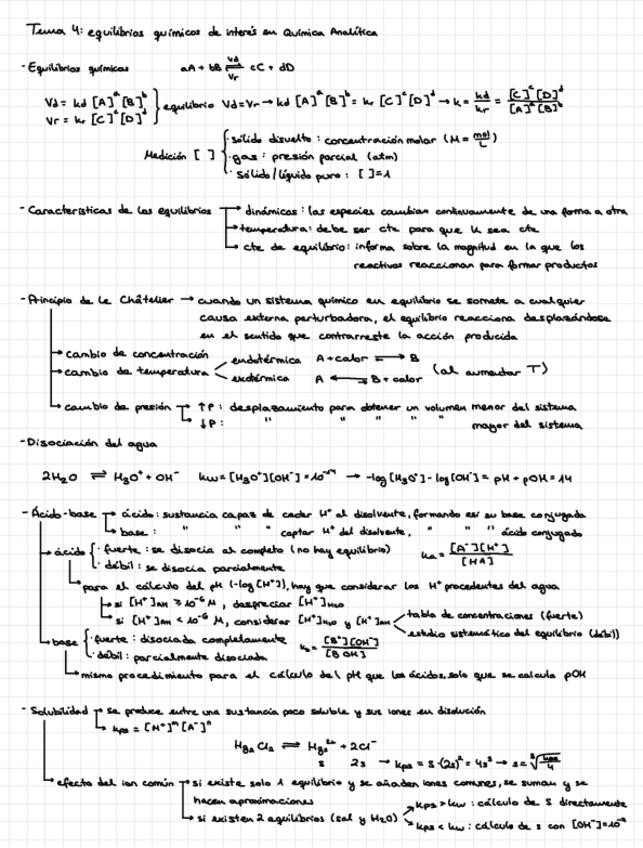 Tema 4: equilibrios químicos de interés en Química Analítica
- Equilibrios químicos aA + bB ⇌ cC + dD
Vd
Vr
Vd = kd [A]^a [B]^b
Vr = kr [C]^c [D]^d
} equilibrio Vd = Vr → kd [A]^a [B]^b = kr [C]^c [D]^d → k = kd/kr = [C]^c [D]^d / [A]^a [B]^b
Medición [ ] { · sólido disuelto : concentración molar (M = mol/L)
· gas : presión parcial (atm)
· sólido/líquido puro : [ ]=1
- Características de los equilibrios → dinámicos : las especies cambian continuamente de una forma a otra
→ temperatura : debe ser cte para que k sea cte
→ cte de equilibrio : informa sobre la magnitud en la que los
reactivos reaccionan para formar productos
- Principio de Le Châtelier → cuando un sistema químico en equilibrio se somete a cualquier
causa externa perturbadora, el equilibrio reacciona desplazándose
en el sentido que contrarreste la acción producida
→ cambio de concentración
→ cambio de temperatura < endotérmica A + calor ⇌ B
exotérmica A ⇌ B + calor
(al aumentar T)
→ cambio de presión → ↑P : desplazamiento para obtener un volumen menor del sistema
→ ↓P : " " " " mayor del sistema
- Disociación del agua
2H2O ⇌ H3O⁺ + OH⁻ kw = [H3O⁺][OH⁻] = 10⁻¹⁴ → -log[H3O⁺] - log[OH⁻] = pH + pOH = 14
- Ácido-base → ácido : sustancia capaz de ceder H⁺ al disolvente, formando así su base conjugada
→ base : " " captar H⁺ del disolvente, " " " ácido conjugado
→ ácido { · fuerte : se disocia al completo (no hay equilibrio)
· débil : se disocia parcialmente
ka = [A⁻][H⁺] / [HA]
→ para el cálculo del pH (-log [H⁺]), hay que considerar los H⁺ procedentes del agua
→ si [H⁺]AH ≥ 10⁻⁶ M, despreciar [H⁺]H2O
→ si [H⁺]AH < 10⁻⁶ M, considerar [H⁺]H2O y [H⁺]AH < tabla de concentraciones (fuerte)
estudio sistemático del equilibrio (débil)
→ base { · fuerte : disociada completamente
· débil : parcialmente disociada
kb = [B⁺][OH⁻] / [BOH]
→ mismo procedimiento para el cálculo del pH que los ácidos, solo que se calcula pOH
- Solubilidad → se produce entre una sustancia poco soluble y sus iones en disolución
→ kps = [M⁺]^m [A⁻]^n
Hg2Cl2 ⇌ Hg2²⁺ + 2Cl⁻
s 2s → kps = s · (2s)² = 4s³ → s = ³√(kps/4)
→ efecto del ion común → si existe solo 1 equilibrio y se añaden iones comunes, se suman y se
hacen aproximaciones
→ si existen 2 equilibrios (sal y H2O) → kps > kw : cálculo de s directamente
→ kps < kw : cálculo de s con [OH⁻] = 10⁻⁷